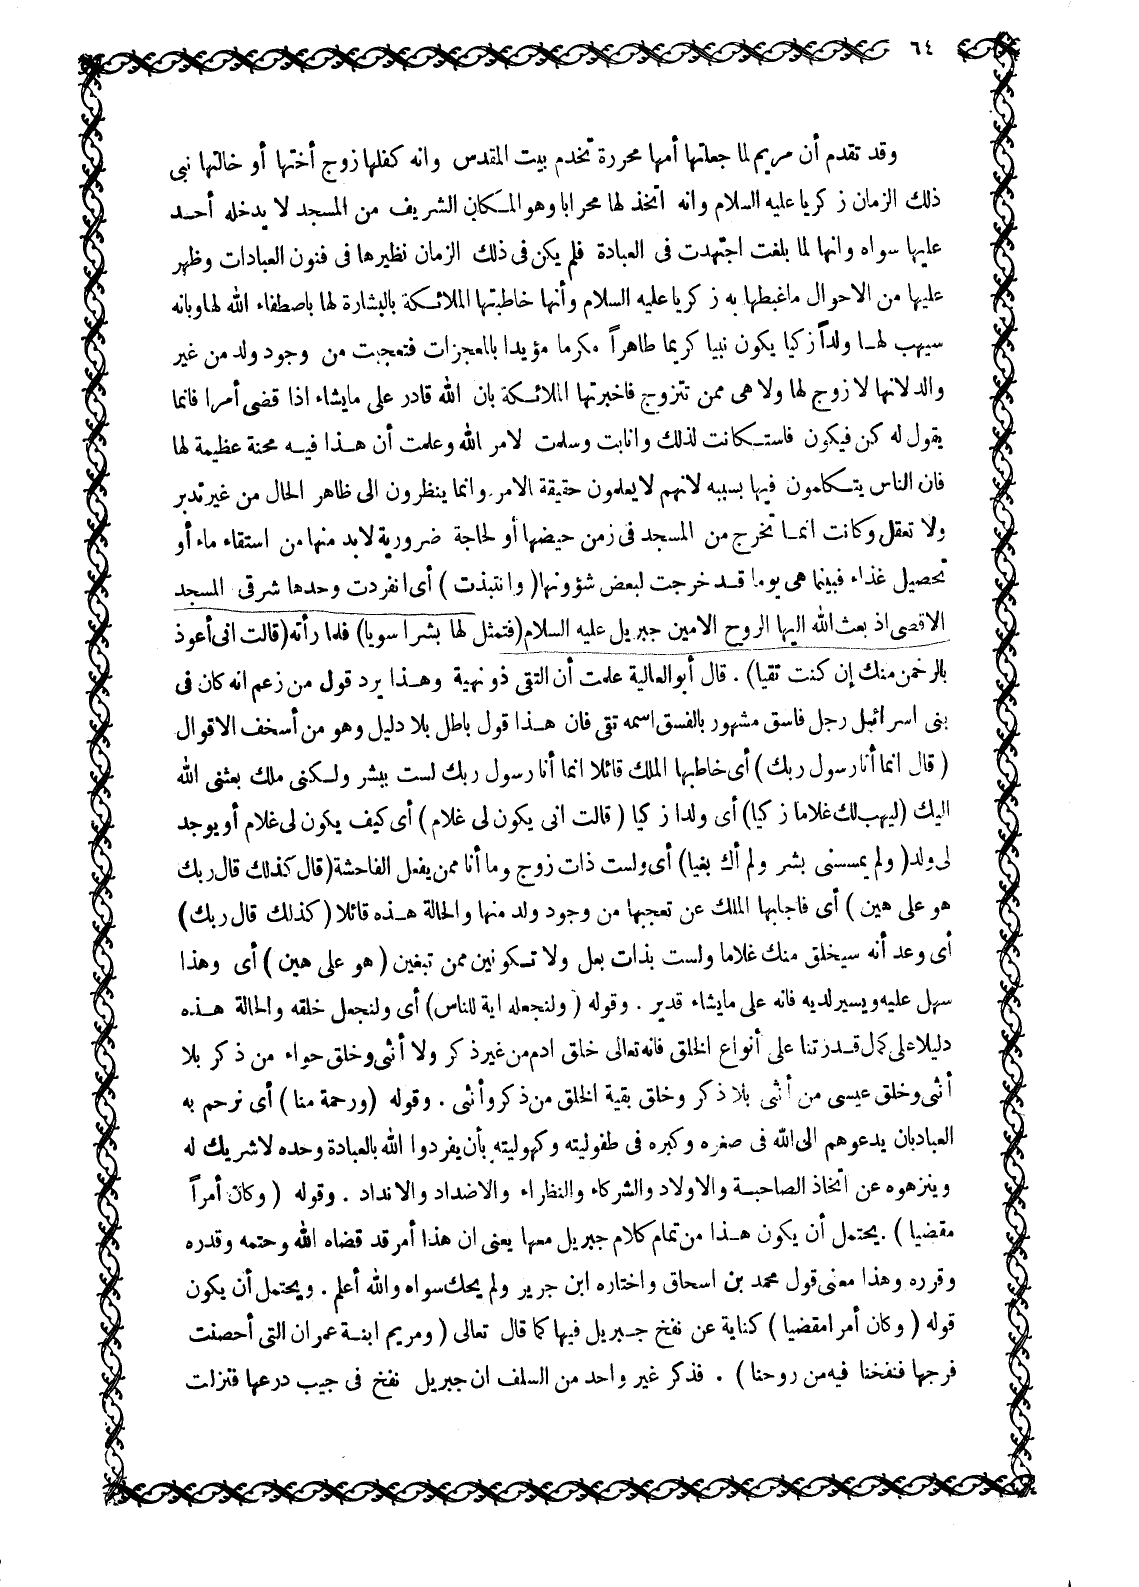 ٦٤
وقد تقدم أن مريم لما جعلتها أمها محررة تخدم بيت المقدس وانه كفلها زوج أختها أو خالتها نبى
ذلك الزمان زكريا عليه السلام وانه اتخذ لها محرابا وهو المكان الشريف من المسجد لا يدخله أحد
عليها سواه وانها لما بلغت اجتهدت فى العبادة فلم يكن فى ذلك الزمان نظيرها فى فنون العبادات وظهر
عليها من الاحوال ماغبطها به زكريا عليه السلام وأنها خاطبتها الملائكة بالبشارة لها باصطفاء الله لها وبانه
سيهب لها ولداً زكيا يكون نبيا كريما طاهراً مكرما مؤيدا بالمعجزات فتعجبت من وجود ولد من غير
والد لانها لا زوج لها ولا هى ممن تتزوج فاخبرتها الملائكة بان الله قادر على مايشاء اذا قضى أمرا فانما
يقول له كن فيكون فاستكانت لذلك وانابت وسلمت لامر الله وعلمت أن هذا فيه محنة عظيمة لها
فان الناس يتكلمون فيها بسببه لانهم لا يعلمون حقيقة الامر وانما ينظرون الى ظاهر الحال من غير تدبر
ولا تعقل وكانت انما تخرج من المسجد فى زمن حيضها أو لحاجة ضرورية لابد منها من استقاء ماء أو
تحصيل غذاء فبينما هى يوما قد خرجت لبعض شؤونها ( وانتبذت ) أى انفردت وحدها شرقى المسجد
الاقصى اذ بعث الله اليها الروح الامين جبريل عليه السلام (فتمثل لها بشرا سويا) فلما رأته (قالت انى أعوذ
بالرحمن منك إن كنت تقيا) . قال أبو العالية علمت أن التقى ذو نهية وهذا يرد قول من زعم انه كان فى
بنى اسرائيل رجل فاسق مشهور بالفسق اسمه تقى فان هذا قول باطل بلا دليل وهو من أسخف الاقوال
( قال انما أنا رسول ربك ) أى خاطبها الملك قائلا انما أنا رسول ربك لست ببشر ولكنى ملك بعثنى الله
اليك (ليهب لك غلاما زكيا) أى ولدا زكيا ( قالت انى يكون لى غلام ) أى كيف يكون لى غلام أو يوجد
لى ولد ( ولم يمسسنى بشر ولم أك بغيا) أى ولست ذات زوج وما أنا ممن يفعل الفاحشة (قال كذلك قال ربك
هو على هين ) أى فاجابها الملك عن تعجبها من وجود ولد منها والحالة هذه قائلا ( كذلك قال ربك )
أى وعد أنه سيخلق منك غلاما ولست بذات بعل ولا تكونين ممن تبغين ( هو على هين ) أى وهذا
سهل عليه ويسير لديه فانه على مايشاء قدير . وقوله ( ولنجعله اية للناس ) أى ولنجعل خلقه والحالة هذه
دليلا على كمال قدرتنا على أنواع الخلق فانه تعالى خلق ادم من غير ذكر ولا أنثى وخلق حواء من ذكر بلا
أنثى وخلق عيسى من أنثى بلا ذكر وخلق بقية الخلق من ذكر وأنثى . وقوله (ورحمة منا ) أى نرحم به
العباد بان يدعوهم الى الله فى صغره وكبره فى طفوليته وكهوليته بأن يفردوا الله بالعبادة وحده لا شريك له
وينزهوه عن اتخاذ الصاحبة والاولاد والشركاء والنظراء والاضداد والانداد . وقوله ( وكان أمراً
مقضيا ) . يحتمل أن يكون هذا من تمام كلام جبريل معها يعنى ان هذا أمر قد قضاه الله وحتمه وقدره
وقرره وهذا معنى قول محمد بن اسحاق واختاره ابن جرير ولم يحك سواه والله أعلم . ويحتمل أن يكون
قوله ( وكان أمرا مقضيا ) كناية عن نفخ جبريل فيها كما قال تعالى ( ومريم ابنة عمران التى أحصنت
فرجها فنفخنا فيه من روحنا ) . فذكر غير واحد من السلف ان جبريل نفخ فى جيب درعها فنزلت